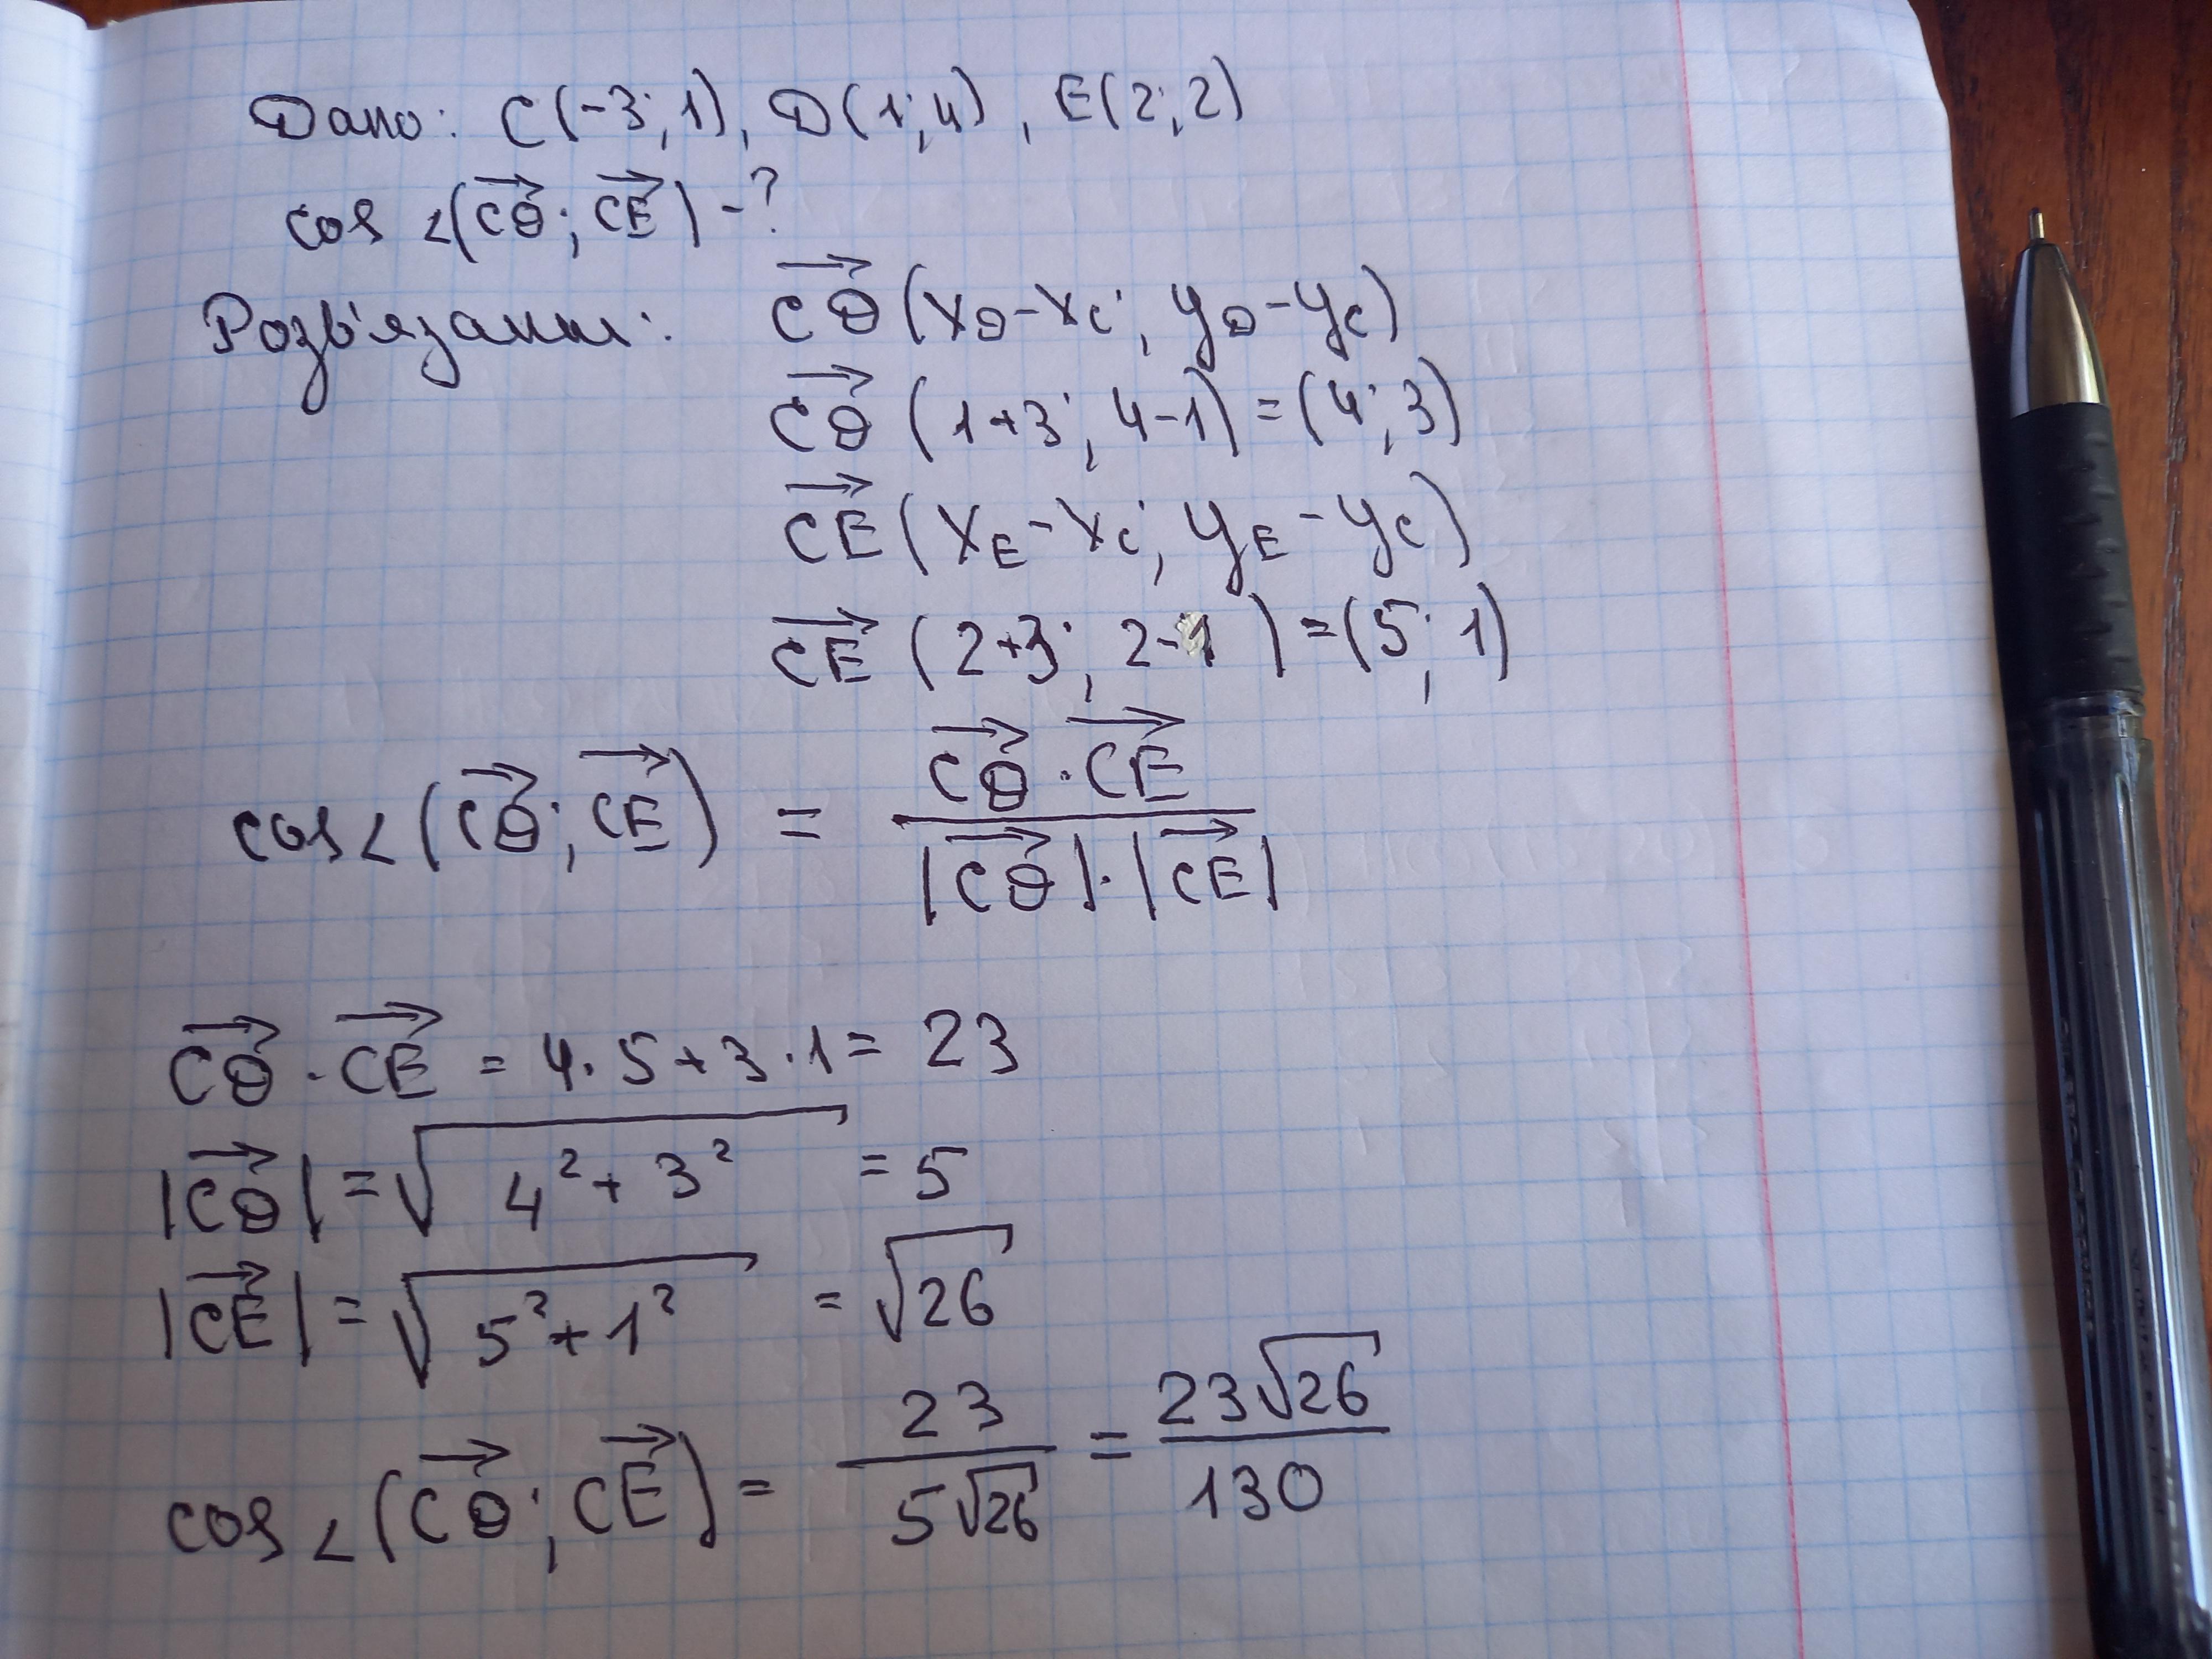 Дано: C(-3; 1), D(1; 4), E(2; 2)
cos ∠(CD; CE) - ?
Розв'язання: CD(xD - xC; yD - yC)
CD (1+3; 4-1) = (4; 3)
CE (xE - xC; yE - yC)
CE (2+3; 2-1) = (5; 1)
cos ∠(CD; CE) = CD · CE / |CD| · |CE|
CD · CE = 4 · 5 + 3 · 1 = 23
|CD| = √(4² + 3²) = 5
|CE| = √(5² + 1²) = √26
cos ∠(CD; CE) = 23 / 5√26 = 23√26 / 130